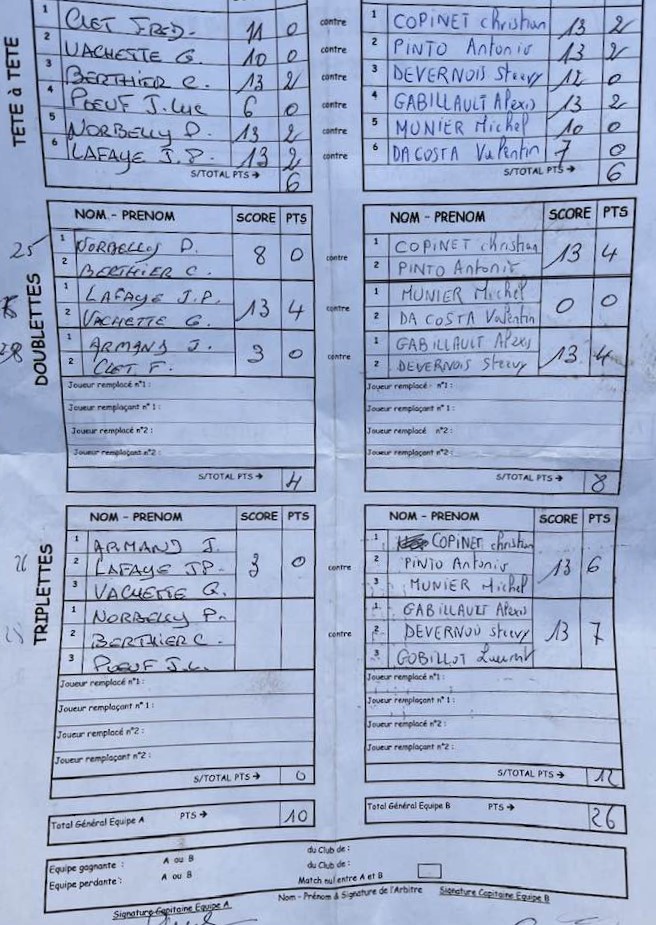 TETE à TETE
1 CLET FRED. 11 0 contre 1 COPINET christian 13 2
2 VACHETTE G. 10 0 contre 2 PINTO Antonio 13 2
3 BERTHIER C. 13 2 contre 3 DEVERNOIS Steevy 12 0
4 POEUF J.Luc 6 0 contre 4 GABILLAULT Alexis 13 2
5 NORBELLY D. 13 2 contre 5 MUNIER Michel 10 0
6 LAFAYE J.P. 13 2 contre 6 DA COSTA Valentin 7 0
S/TOTAL PTS → 6 S/TOTAL PTS → 6
DOUBLETTES
NOM. - PRENOM SCORE PTS NOM - PRENOM SCORE PTS
25 1 NORBELLY D. 8 0 contre 1 COPINET christian 13 4
2 BERTHIER C. 2 PINTO Antonio
1 LAFAYE J.P. 13 4 contre 1 MUNIER Michel 0 0
2 VACHETTE G. 2 DA COSTA Valentin
1 ARMAND J. 3 0 contre 1 GABILLAULT Alexis 13 4
2 CLET F. 2 DEVERNOIS Steevy
Joueur remplacé n°1 : Joueur remplacé n°1 :
Joueur remplaçant n° 1 : Joueur remplaçant n° 1 :
Joueur remplacé n°2 : Joueur remplacé n°2 :
Joueur remplaçant n°2 : Joueur remplaçant n°2 :
S/TOTAL PTS → 4 S/TOTAL PTS → 8
TRIPLETTES
NOM - PRENOM SCORE PTS NOM - PRENOM SCORE PTS
1 ARMAND J. 1 COPINET christian
2 LAFAYE JP. 3 0 contre 2 PINTO Antonio 13 6
3 VACHETTE G. 3 MUNIER Michel
1 NORBELLY P. 1 GABILLAULT Alexis
2 BERTHIER C. contre 2 DEVERNOIS Steevy 13 7
3 POEUF J.L. 3 GOBILLOT Laurent
Joueur remplacé n°1 : Joueur remplacé n°1 :
Joueur remplaçant n° 1 : Joueur remplaçant n° 1 :
Joueur remplacé n°2 : Joueur remplacé n°2 :
Joueur remplaçant n°2 : Joueur remplaçant n°2 :
S/TOTAL PTS → 0 S/TOTAL PTS → 12
Total Général Equipe A PTS → 10 Total Général Equipe B PTS → 26
Equipe gagnante : A ou B du Club de :
Equipe perdante : A ou B du Club de :
Match nul entre A et B
Signature Capitaine Equipe A Nom - Prénom & Signature de l'Arbitre Signature Capitaine Equipe B